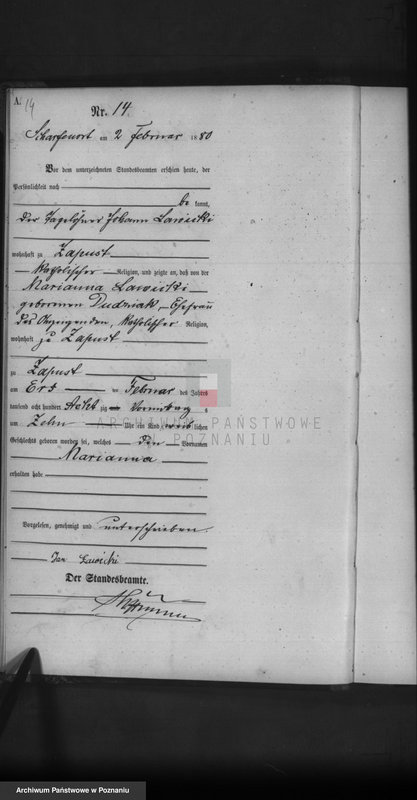 A. 14
Nr. 14.
Scharfenort am 2 Februar 1880
Vor dem unterzeichneten Standesbeamten erschien heute, der
Persönlichkeit nach
be kannt,
der Tagelöhner Johann Lawicki
wohnhaft zu Zapust
katholischer Religion, und zeigte an, daß von der
Marianna Lawicki
geborenen Dudziak, Ehefrau
des Anzeigenden, katholischer Religion,
wohnhaft zu Zapust
zu Zapust
am Erst en Februar des Jahres
tausend acht hundert Acht zig Vormittag s
um Zehn Uhr ein Kind weib lichen
Geschlechts geboren worden sei, welches den Vornamen
Marianna
erhalten habe
Vorgelesen, genehmigt und unterschrieben.
Jan
Der Standesbeamte.
ARCHIWUM PAŃSTWOWE
W POZNANIU
Archiwum Państwowe w Poznaniu